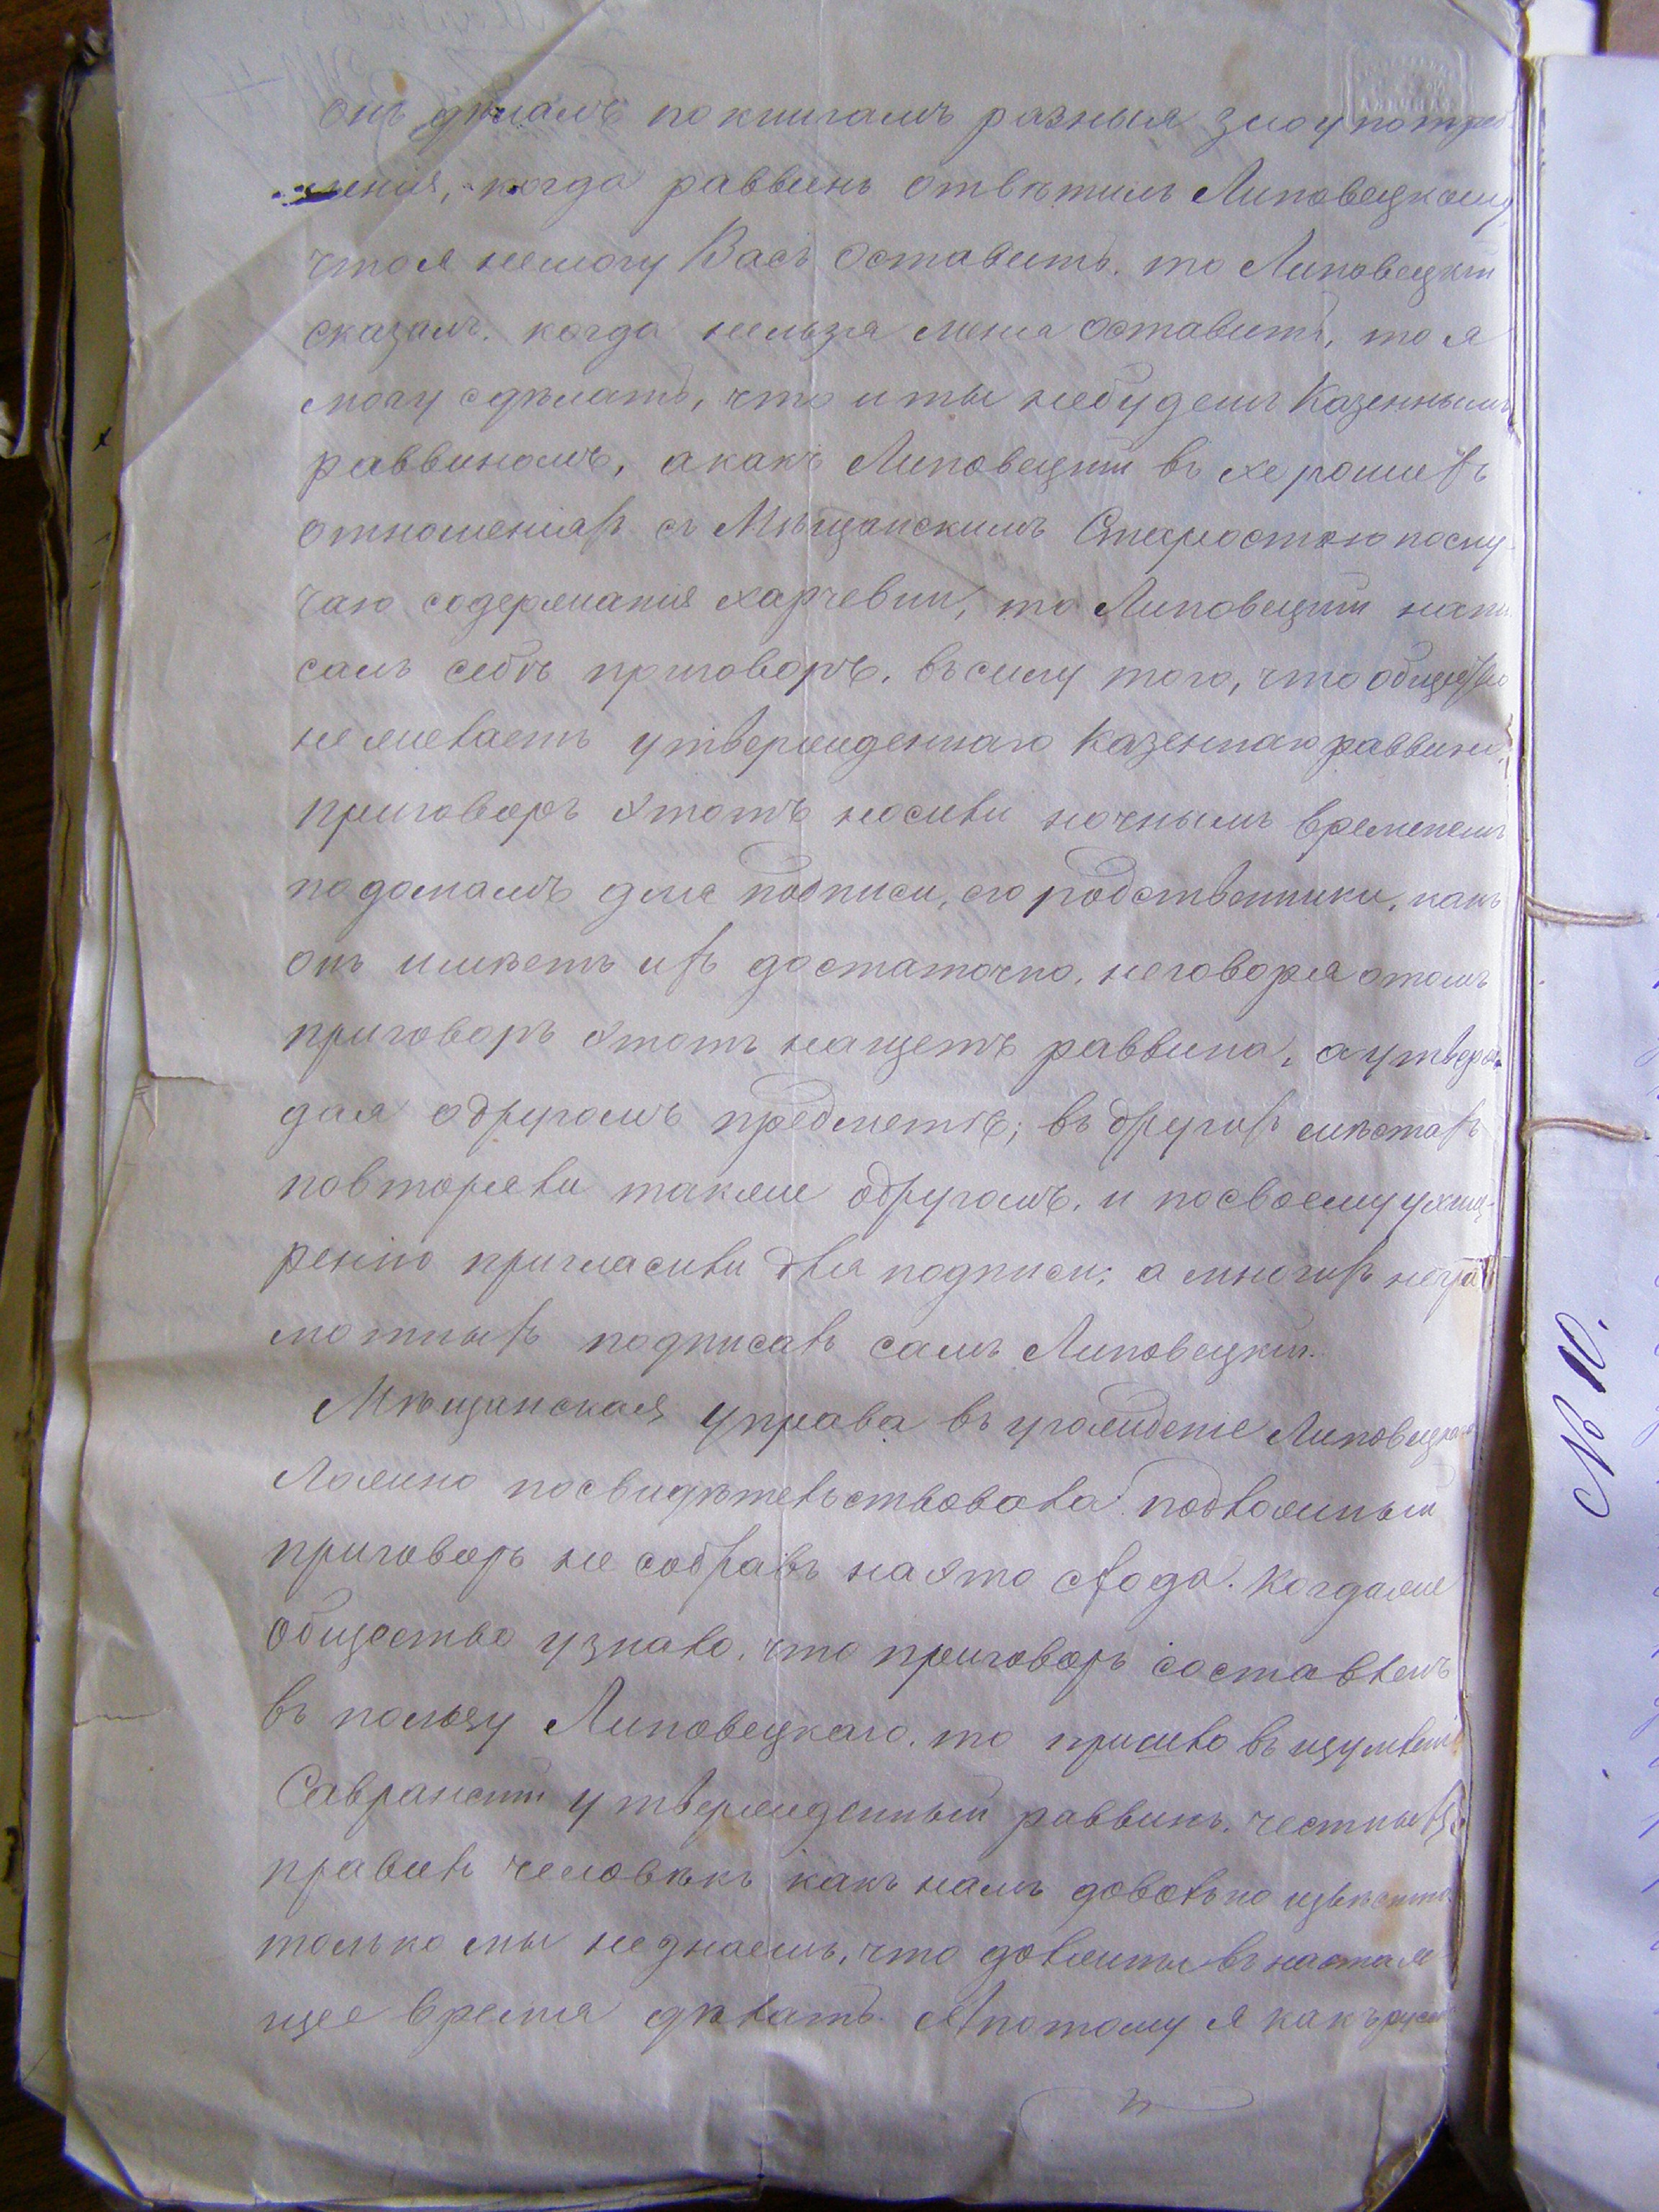 онъ дѣлалъ по книгамъ разныя злоупотреб
ленія, когда раввинъ отвѣтилъ Липовецкому,
что я немогу Васъ оставить. то Липовецкій
сказалъ. когда нельзя меня оставить, то я
могу сдѣлать, что и ты небудешъ Казеннымъ
раввиномъ, а какъ Липовецкій въ хорошихъ
отношеніяхъ съ Мѣщанскимъ Старостою послу-
чаю содержанія харчевни, то Липовецкій напи
салъ себѣ приговоръ. въ силу того, что общество
не желаетъ утвержденнаго Казеннаго раввина,
приговоръ этотъ носили ночнымъ временемъ
по домамъ для подписи, его родственники, какъ
онъ имѣетъ ихъ достаточно. неговоря отомъ
приговоръ этотъ нащетъ раввина, а утверж
дая одругомъ предметѣ; въ другихъ мѣстахъ
повторяли также одругомъ. и посвоему ухищ-
ренію пригласили для подписи; а многихъ негра
мотныхъ подписалъ самъ Липовецкій.
Мѣщанская управа въ угожденіе Липовецкаго
Ложно посвидѣтельствовала подложный
приговоръ не собравъ на это схода. Когда же
Общество узнало, что приговоръ составленъ
въ пользу Липовецкаго. то пришло въ изумленіе
Савранскій утвержденный раввинъ. честный
человѣкъ какъ намъ довольно извѣстно
только мы незнаемъ, что должны въ настоя
щее время дѣлать. А потому я какъ
№ 10.